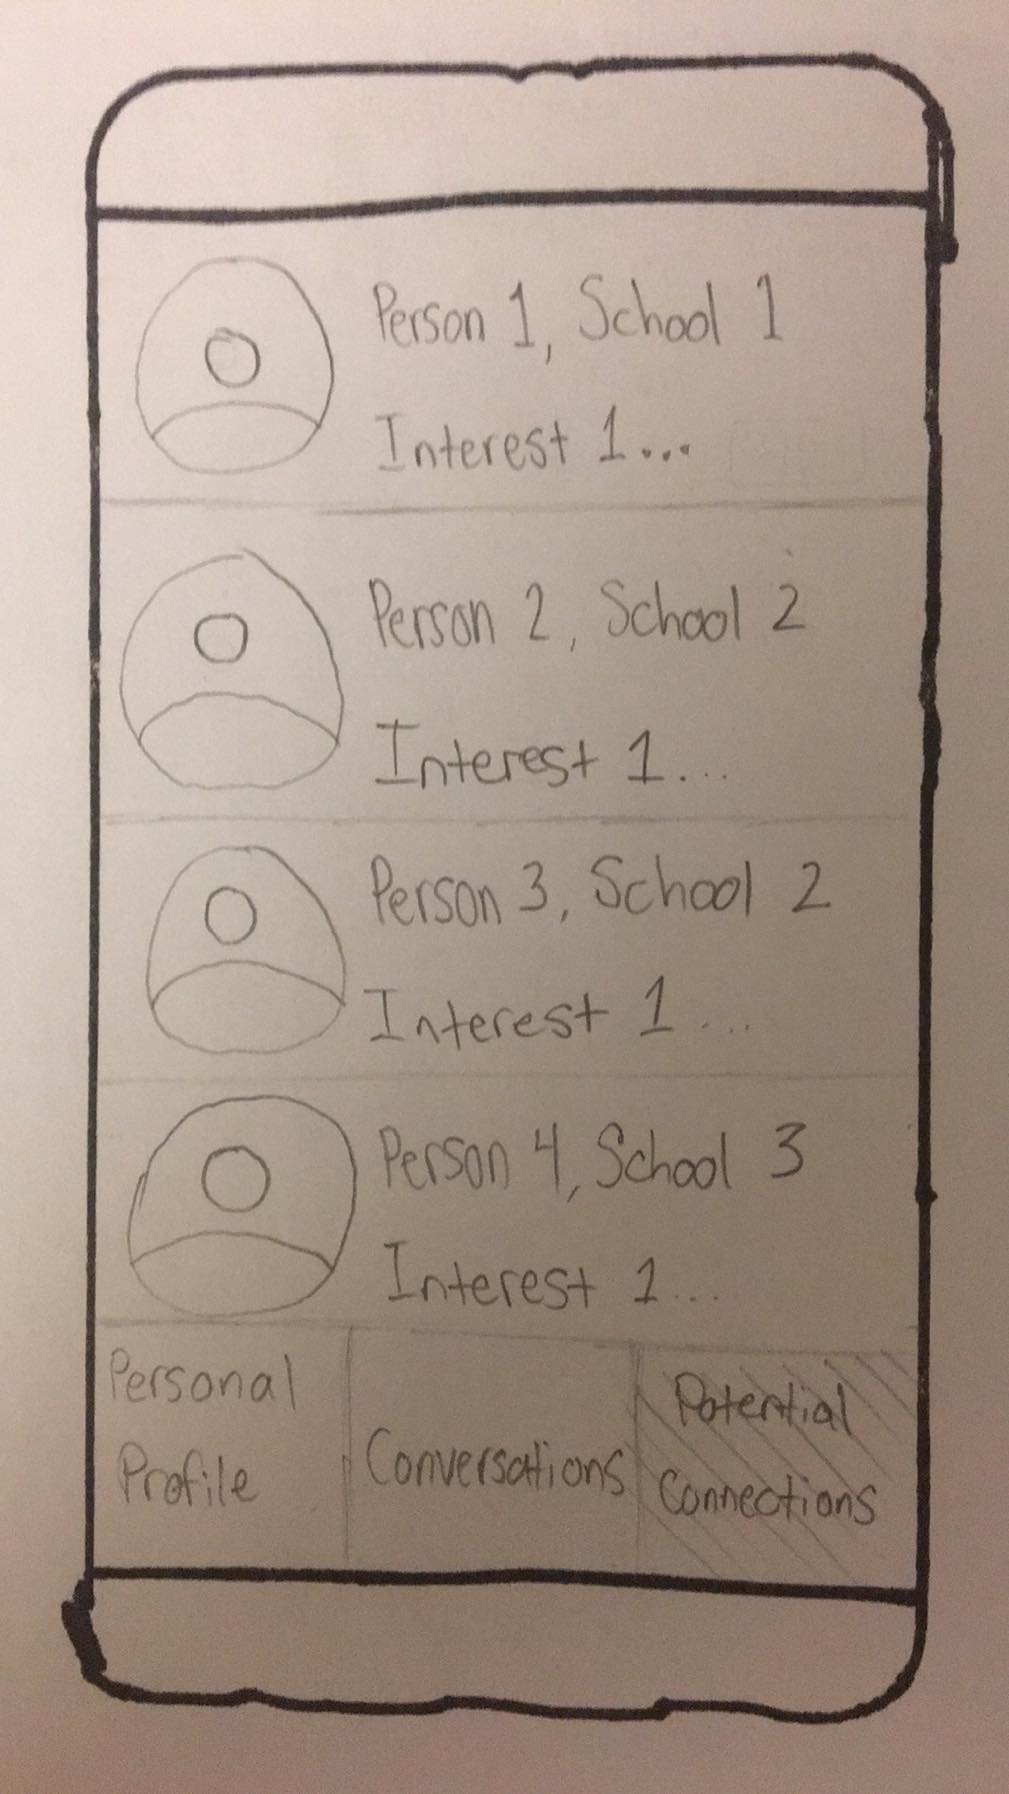 Person 1, School 1
Interest 1...
Person 2, School 2
Interest 1...
Person 3, School 2
Interest 1...
Person 4, School 3
Interest 1...
Personal
Profile
Conversations
Potential
Connections